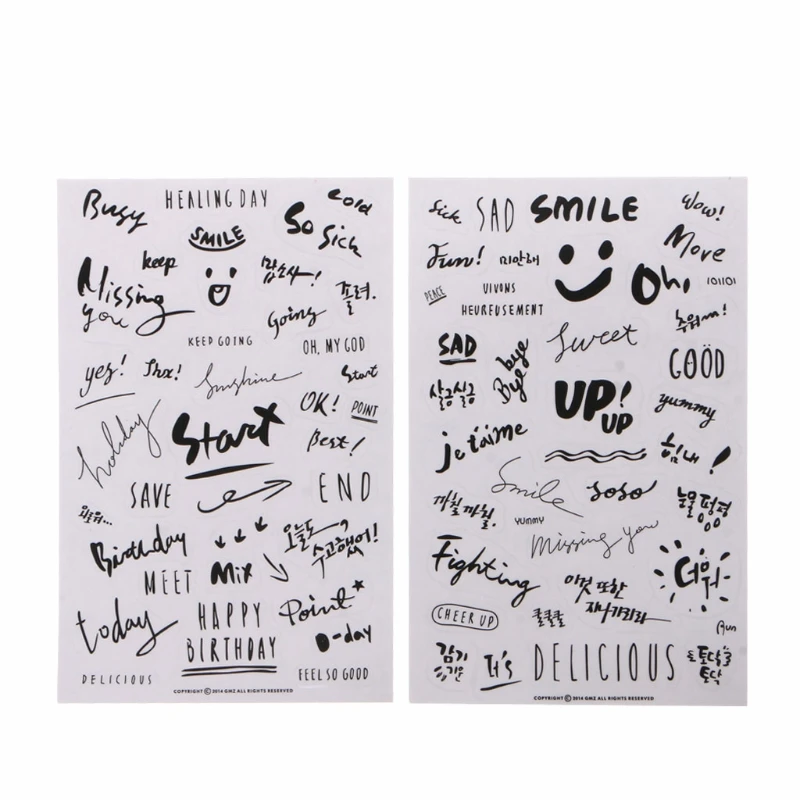 Busy
HEALING DAY
Cold
So Sick
SMILE
keep
감소사!
Missing
you
졸려.
Going
KEEP GOING
OH, MY GOD
yes!
Thx!
Sunshine
Start
OK!
POINT
holiday
Start
Best!
SAVE
END
외로워...
Birthday
오늘도
수고했어!
MEET
Mix
today
HAPPY
BIRTHDAY
Point
D-day
DELICIOUS
FEEL SO GOOD
COPYRIGHT © 2014 GMZ ALL RIGHTS RESERVED
Sick
SAD
SMILE
Wow!
Fun!
미안해
Move
PEACE
VIVONS
HEUREUSEMENT
Oh,
101101
추워!
SAD
bye
Bye
Sweet
GOOD
살금살금
UP!
UP
yummy
je t'aime
힘내!
Smile
soso
까칠까칠.
YUMMY
눈물펑펑
Missing you
Fighting
더워
이것 또한
지나가리라
CHEER UP
쿨쿨쿨
Run
감기
It's
DELICIOUS
토닥
토닥
COPYRIGHT © 2014 GMZ ALL RIGHTS RESERVED